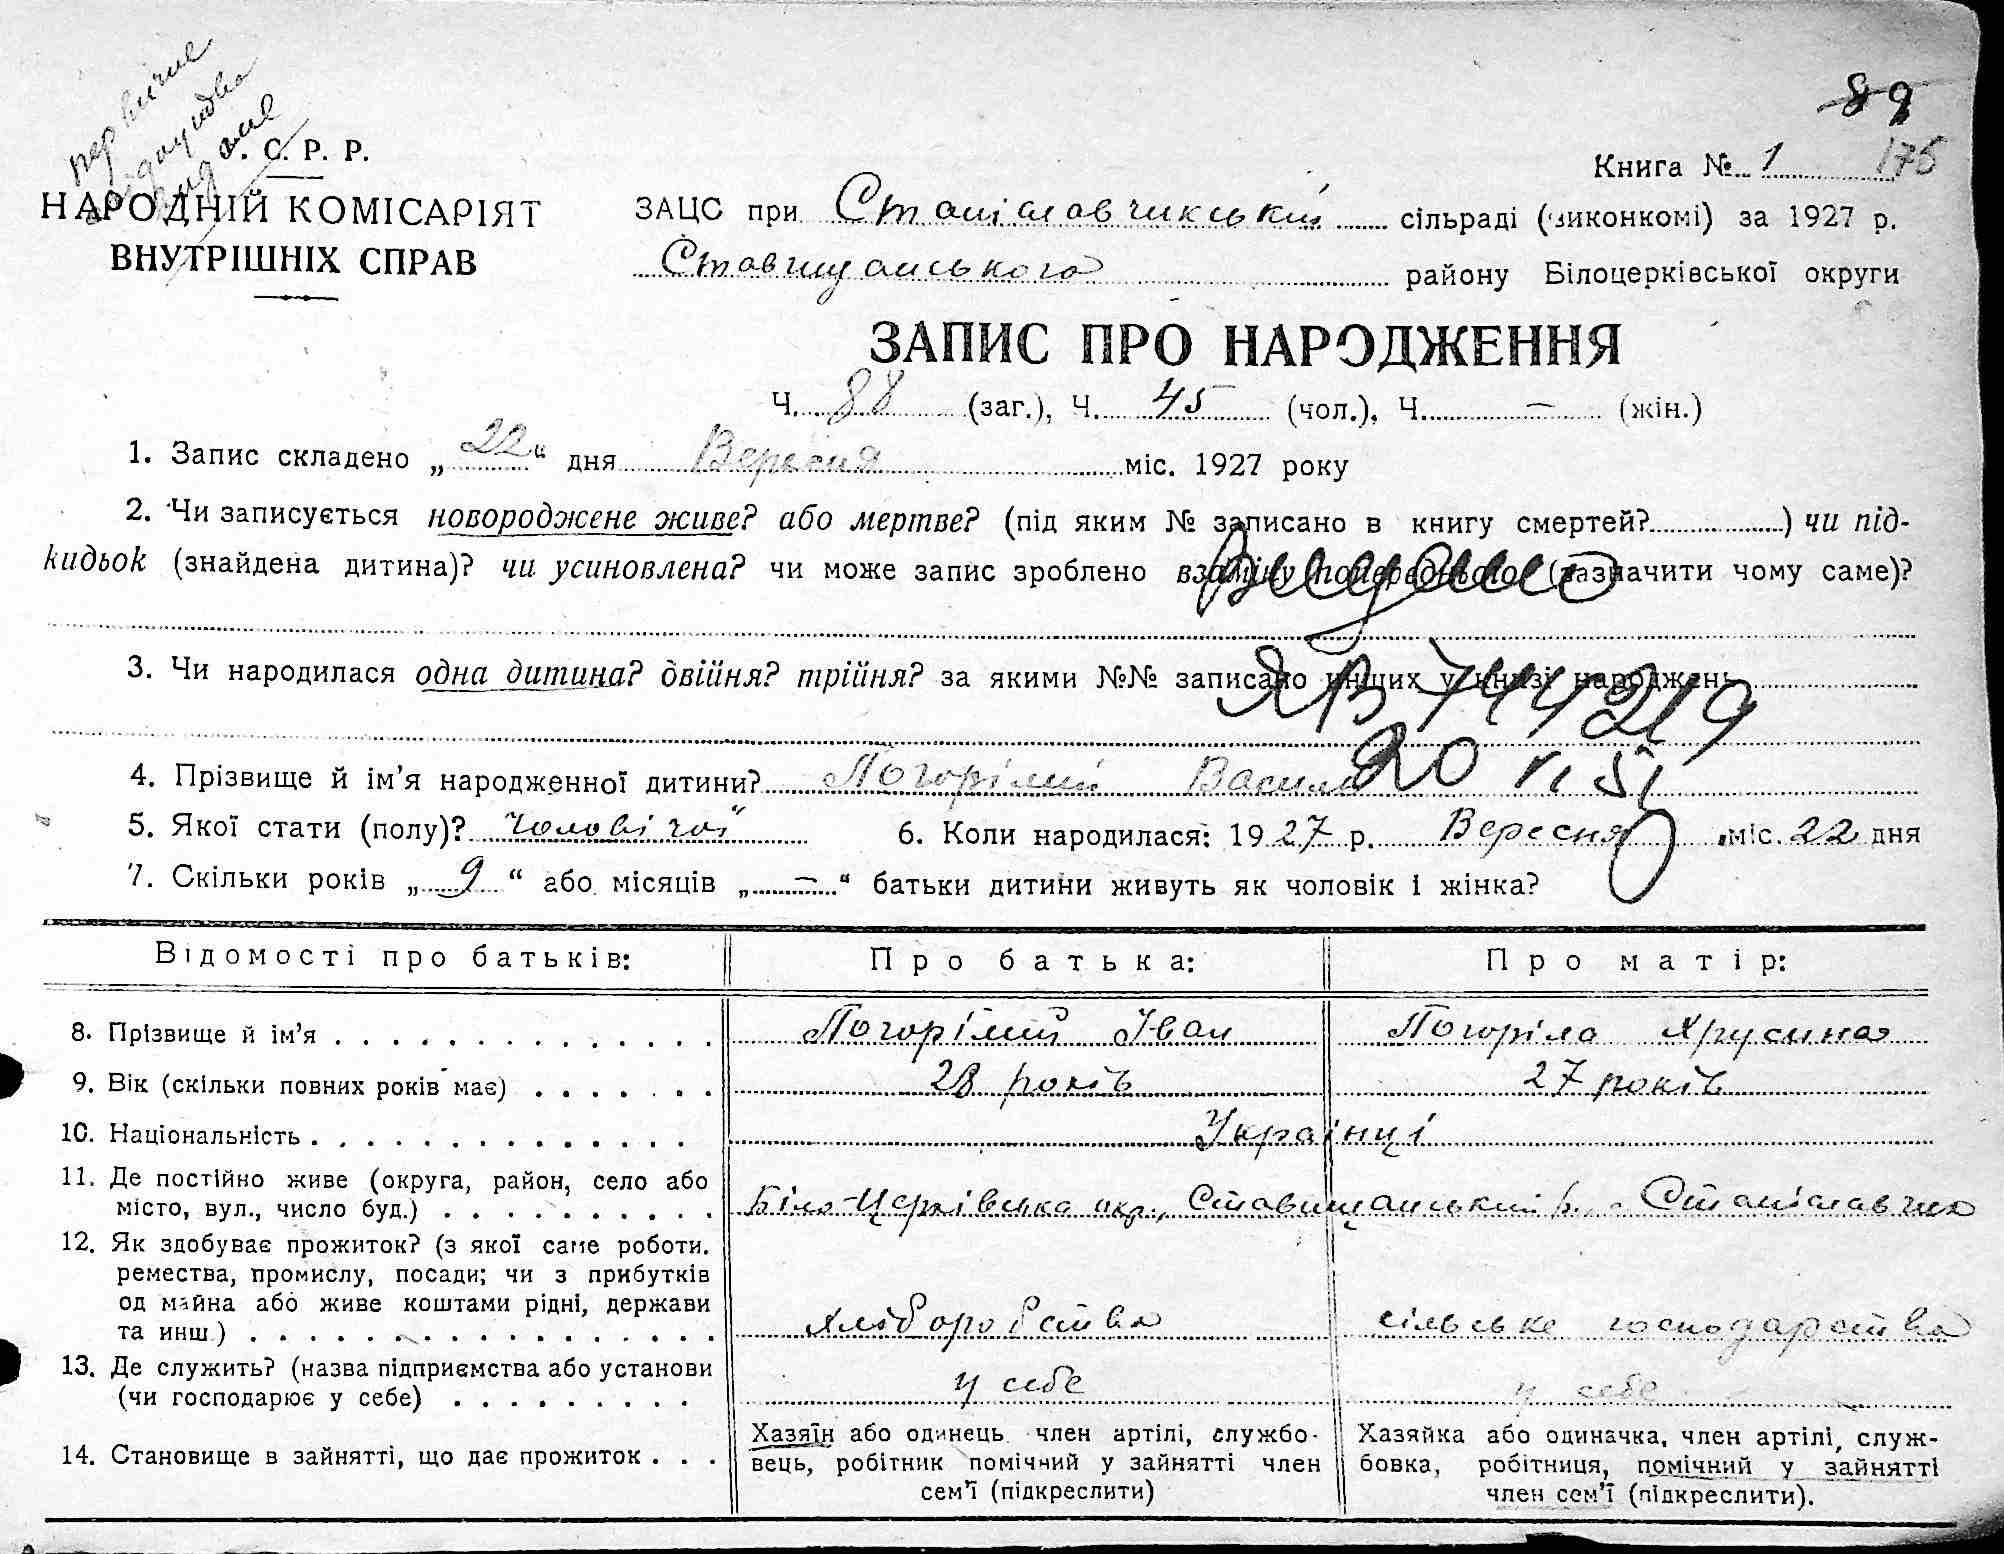 первичне
видане
89
. С. Р. Р.
Книга № 1
175
НАРОДНІЙ КОМІСАРІЯТ
ВНУТРІШНІХ СПРАВ
ЗАЦС при Станіславчикській сільраді (виконкомі) за 1927 р.
Ставищанського району Білоцерківської округи
ЗАПИС ПРО НАРОДЖЕННЯ
Ч. 88 (заг.), Ч. 45 (чол.), Ч. — (жін.)
1. Запис складено „22“ дня Вересня міс. 1927 року
2. Чи записується новороджене живе? або мертве? (під яким № записано в книгу смертей? ) чи під-
кидьок (знайдена дитина)? чи усиновлена? чи може запис зроблено взаміну попереднього (зазначити чому саме)?
Видано
3. Чи народилася одна дитина? двійня? трійня? за якими №№ записано инших у книзі народжень
ЯВ 744219
4. Прізвище й ім’я народженної дитини? Погорілий Василь
20
5. Якої стати (полу)? Чоловічої 6. Коли народилася: 1927 р. Вересня міс. 22 дня
7. Скільки років „9“ або місяців „—“ батьки дитини живуть як чоловік і жінка?
Відомості про батьків: Про батька: Про матір:
8. Прізвище й ім’я . . . . . . . . . . . . . . Погорілий Іван Погоріла Хрусина
9. Вік (скільки повних років має) . . . . . . . 28 років 27 років
10. Національність . . . . . . . . . . . . . . Українці
11. Де постійно живе (округа, район, село або
місто, вул., число буд.) . . . . . . . . . . Біло-Церківська окр., Ставищанський р., Станіславчик
12. Як здобуває прожиток? (з якої саме роботи,
ремества, промислу, посади; чи з прибутків
од майна або живе коштами рідні, держави
та инш.) . . . . . . . . . . . . . . . . . Хліборобство сільське господарство
13. Де служить? (назва підприємства або установи
(чи господарює у себе) . . . . . . . . . у себе у себе
14. Становище в зайнятті, що дає прожиток . . .
Хазяїн або одинець член артілі, службо-
вець, робітник помічний у зайнятті член
сем’ї (підкреслити)
Хазяйка або одиначка, член артілі, служ-
бовка, робітниця, помічний у зайнятті
член сем’ї (підкреслити).